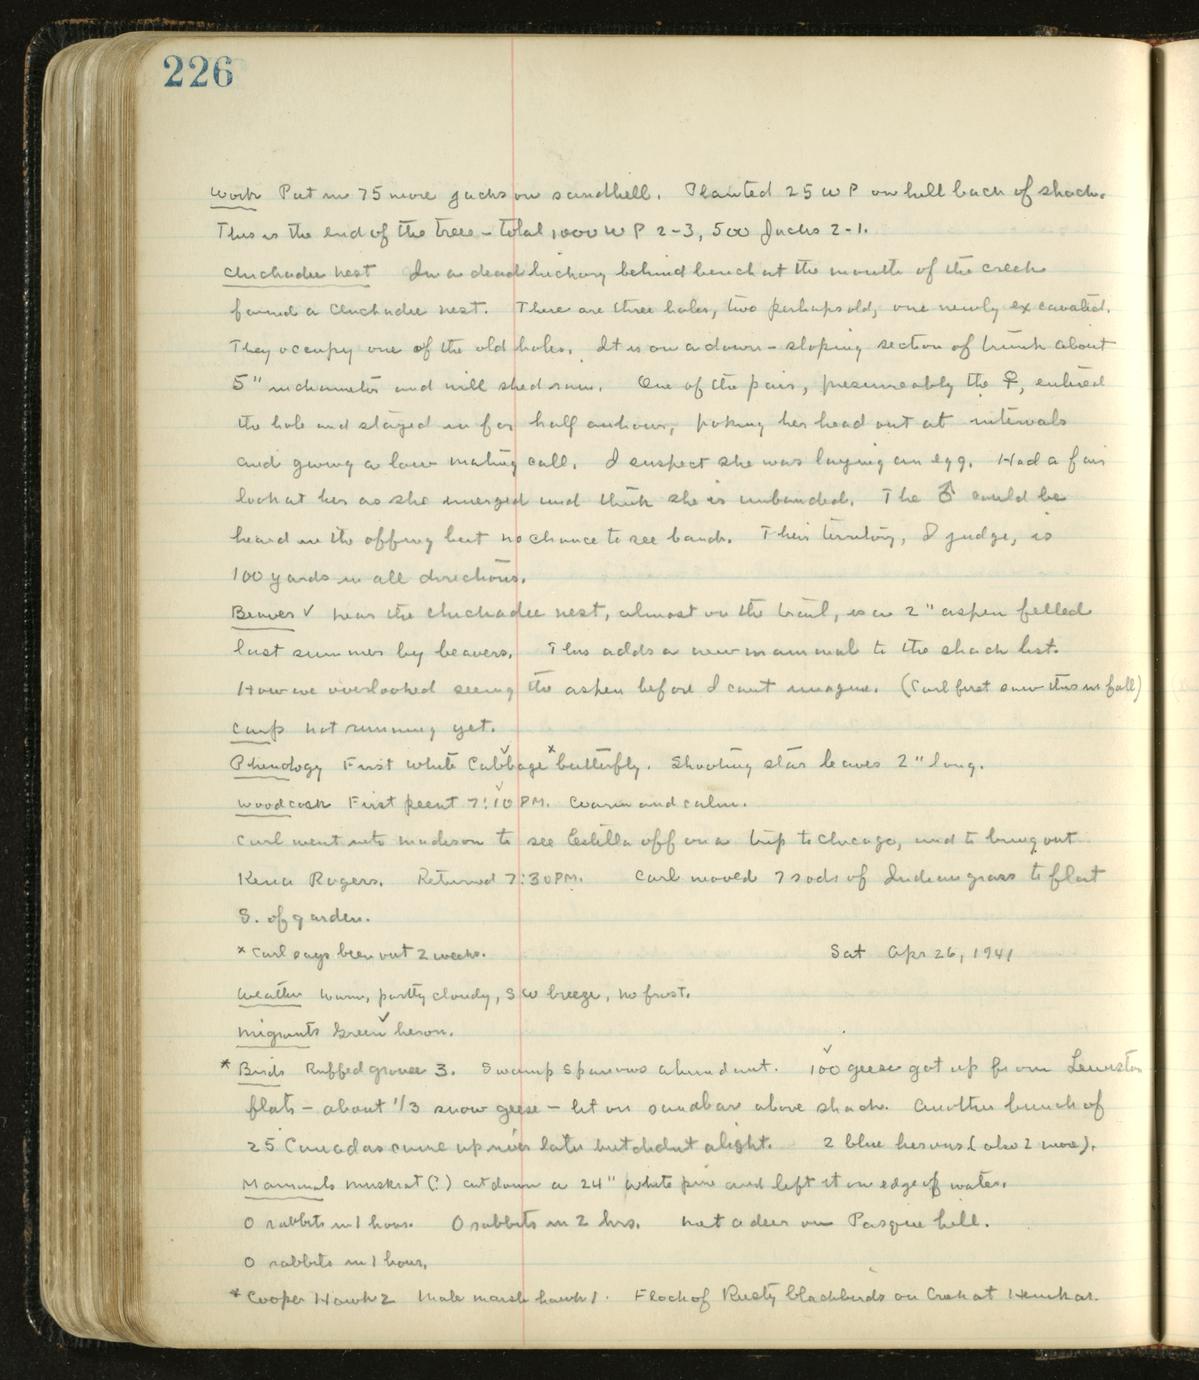 226
Work Put in 75 more jacks on sandhill. Planted 25 W P on hill back of shack.
This is the end of the trees - total 1000 W P 2-3, 500 Jacks 2-1.
Chickadee nest In a dead hickory behind bench at the mouth of the creek
found a Chickadee nest. There are three holes, two perhaps old, one newly excavated.
They occupy one of the old holes. It is on a down-sloping section of trunk about
5" in diameter and will shed rain. One of the pair, presumeably the ♀, entered
the hole and stayed in for half an hour, poking her head out at intervals
and giving a low mating call. I suspect she was laying an egg. Had a fair
look at her as she emerged and think she is unbanded. The ♂ could be
heard in the offing but no chance to see band. Their territory, I judge, is
100 yards in all directions.
Beaver ✓ Near the chickadee nest, almost on the trail, is a 2" aspen felled
last summer by beavers. This adds a new mammal to the shack list.
How we overlooked seeing the aspen before I cant imagine. (Carl first saw this in fall)
Carp not running yet.
Phenology First White Cabbage* butterfly. Shooting star leaves 2" long.
Woodcock First peent 7:10 PM. Warm and calm.
Carl went into Madison to see Estella off on a trip to Chicago, and to bring out
Rogers. Returned 7:30 PM. Carl moved 7 sods of Indiangrass to flat
S. of garden.
* Carl says been out 2 weeks.
Sat Apr 26, 1941
Weather Warm, partly cloudy, SW breeze, no frost.
Migrants Green ✓ heron.
* Birds Ruffed grouse 3. Swamp Sparrows abundant. 100 ✓ geese got up from Lewiston
flats - about 1/3 snow geese - lit on sandbar above shack. Another bunch of
25 Canadas came up river later but didnt alight. 2 blue herons (also 2 more).
Mammals Muskrat (?) cut down a 24" white pine and left it on edge of water.
0 rabbits in 1 hour. 0 rabbits in 2 hrs. Not a deer on Pasque hill.
0 rabbits in 1 hour.
* Cooper Hawk 2 Male marsh hawk 1. Flock of Rusty blackbirds on Creek at